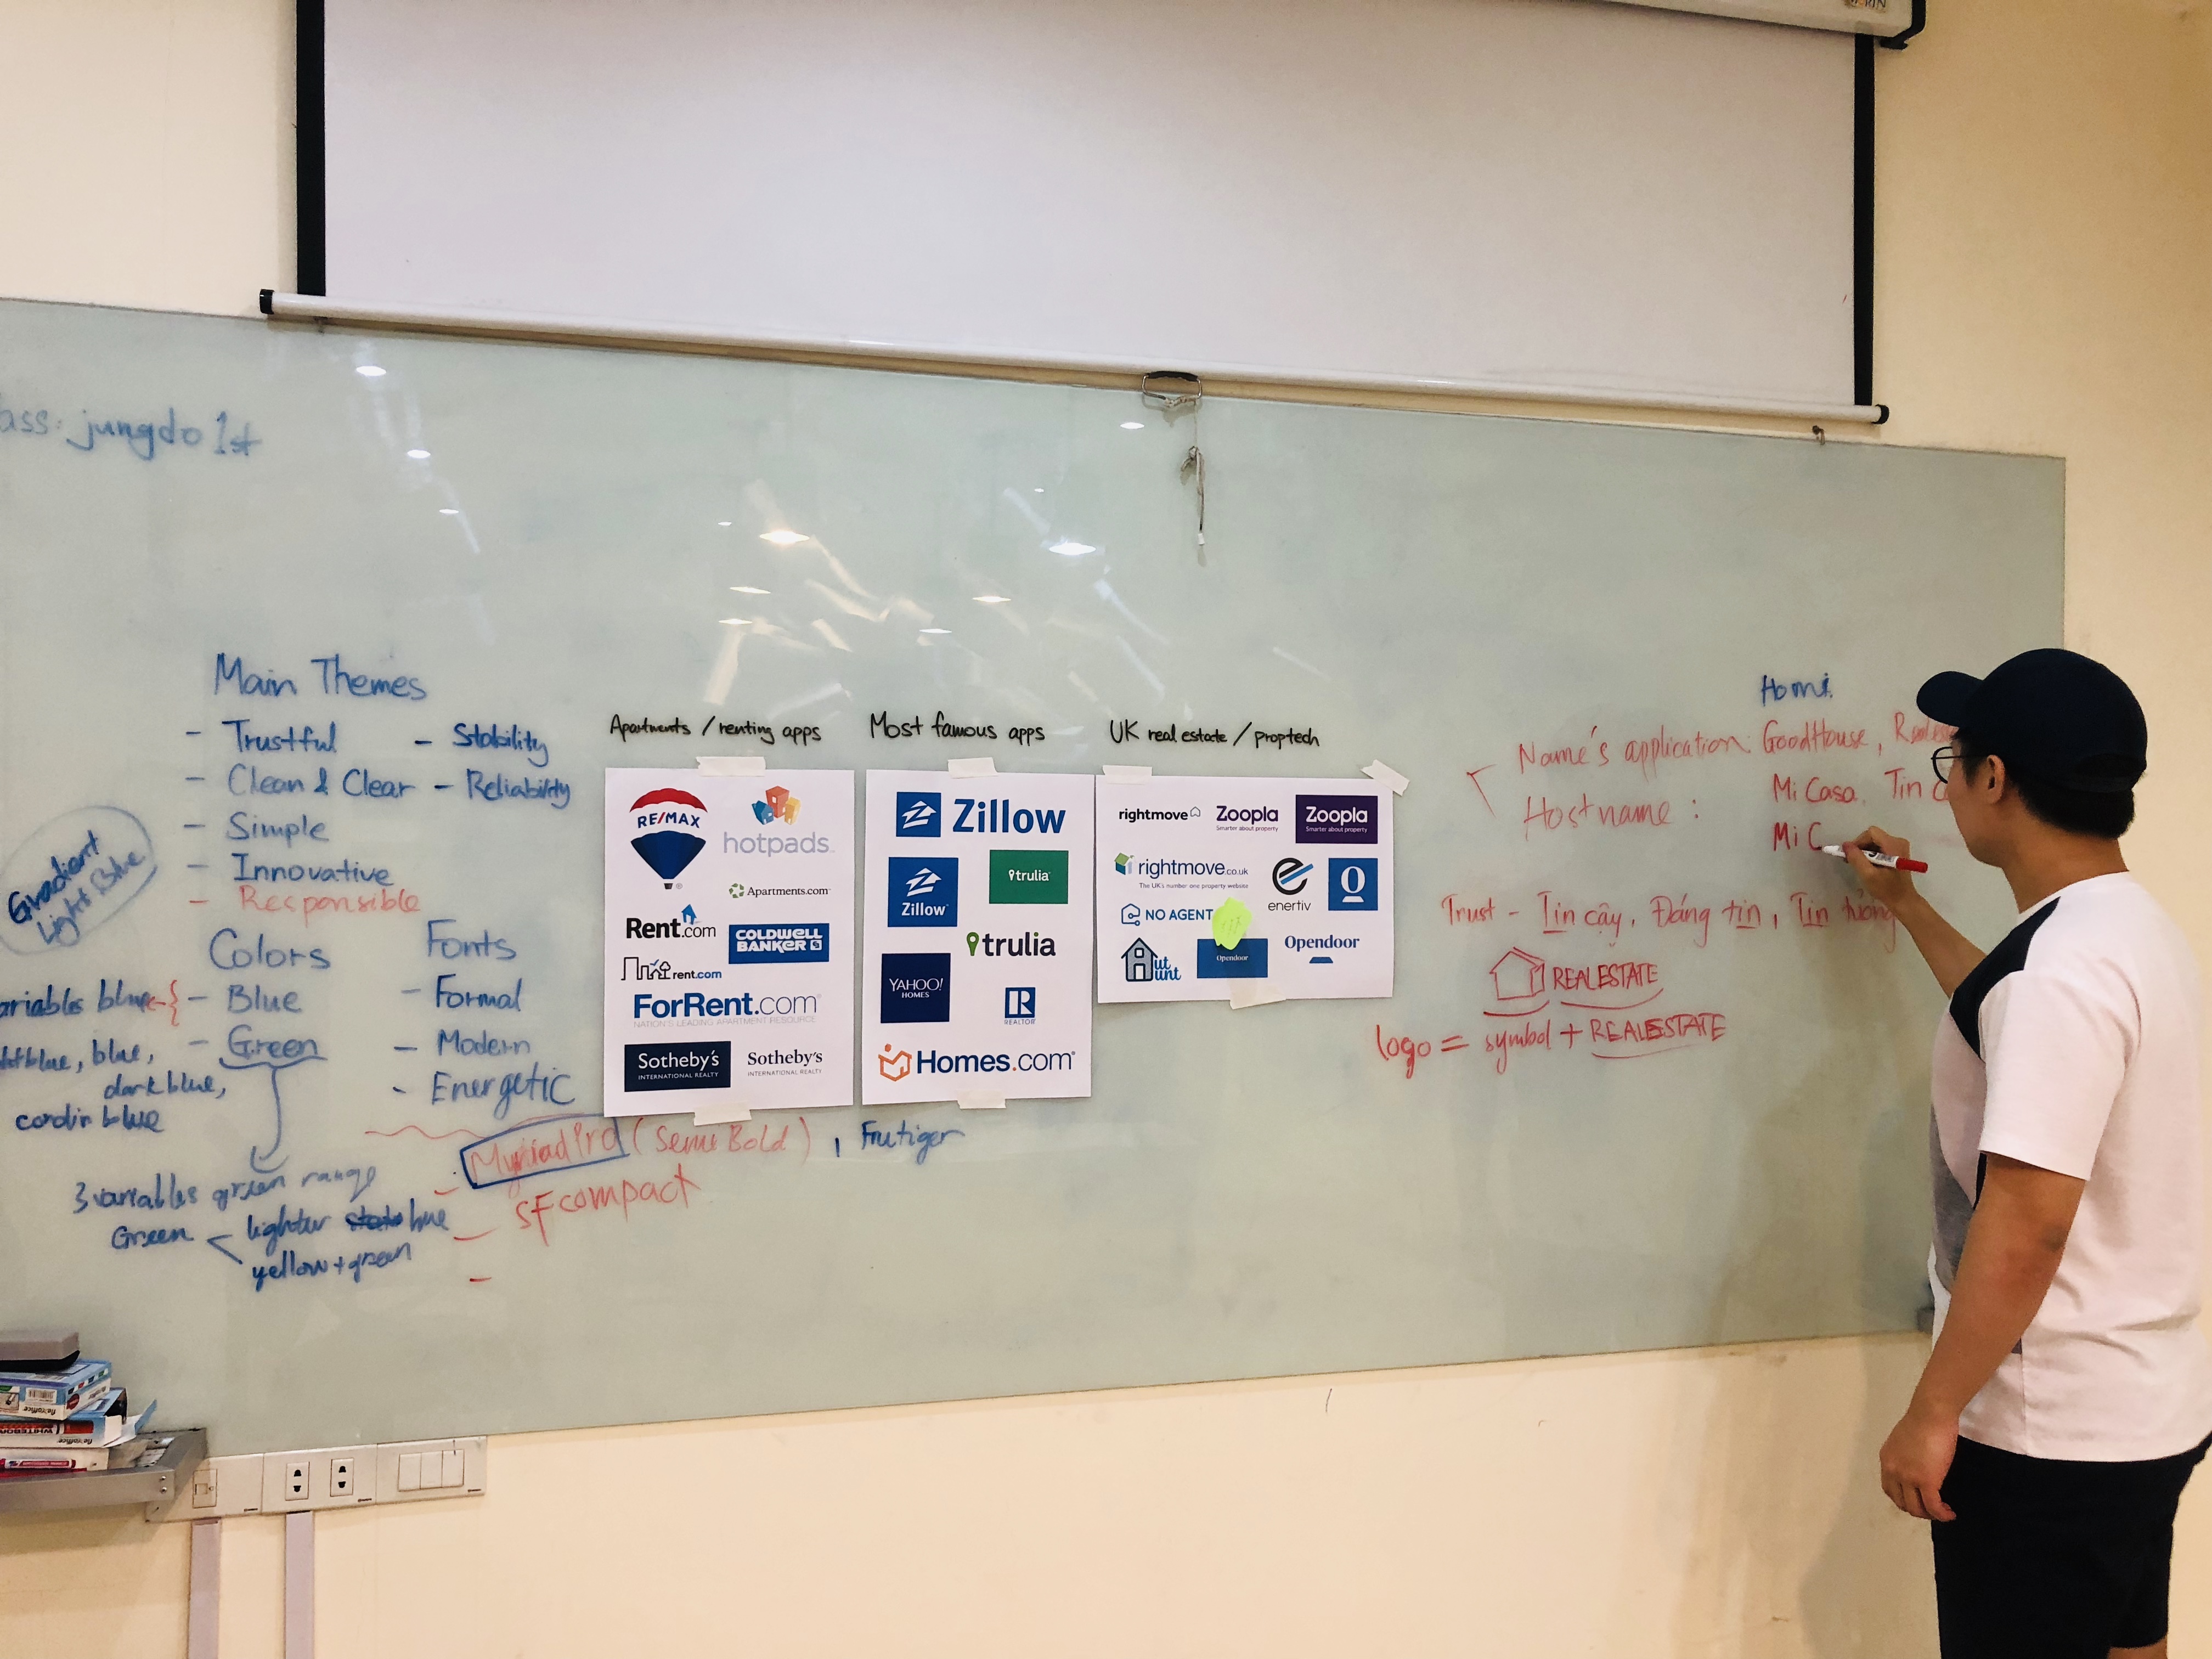 jungdo1st
Main Themes
- Trustful - Stability
- Clean & Clear - Reliability
- Simple
- Innovative
- Responsible
Gradient
Light Blue
Colors
- Blue
- Green
blue, blue,
dark blue,
blue
3 variables green range
Green lighter blue
yellow + green
Fonts
- Formal
- Modern
- Energetic
- MyriadPro (Semi Bold), Frutiger
- SF compact
-
Apartments / renting apps
RE/MAX
hotpads
Apartments.com
Rent.com
COLDWELL
BANKER
rent.com
ForRent.com
NATION'S LEADING APARTMENT RESOURCE
Sotheby's
INTERNATIONAL REALTY
Sotheby's
INTERNATIONAL REALTY
Most famous apps
Zillow
Zillow
trulia
trulia
YAHOO!
HOMES
REALTOR
Homes.com
UK real estate / proptech
rightmove
Zoopla
Smarter about property
Zoopla
Smarter about property
rightmove.co.uk
The UK's number one property website
enertiv
NO AGENT
Opendoor
Opendoor
Homi
Name's application: GoodHouse,
Hostname :
Mi Casa, Tin
Mi C
Trust - Tin cậy, Đáng tin, Tin tưởng
REALESTATE
logo = symbol + REALESTATE